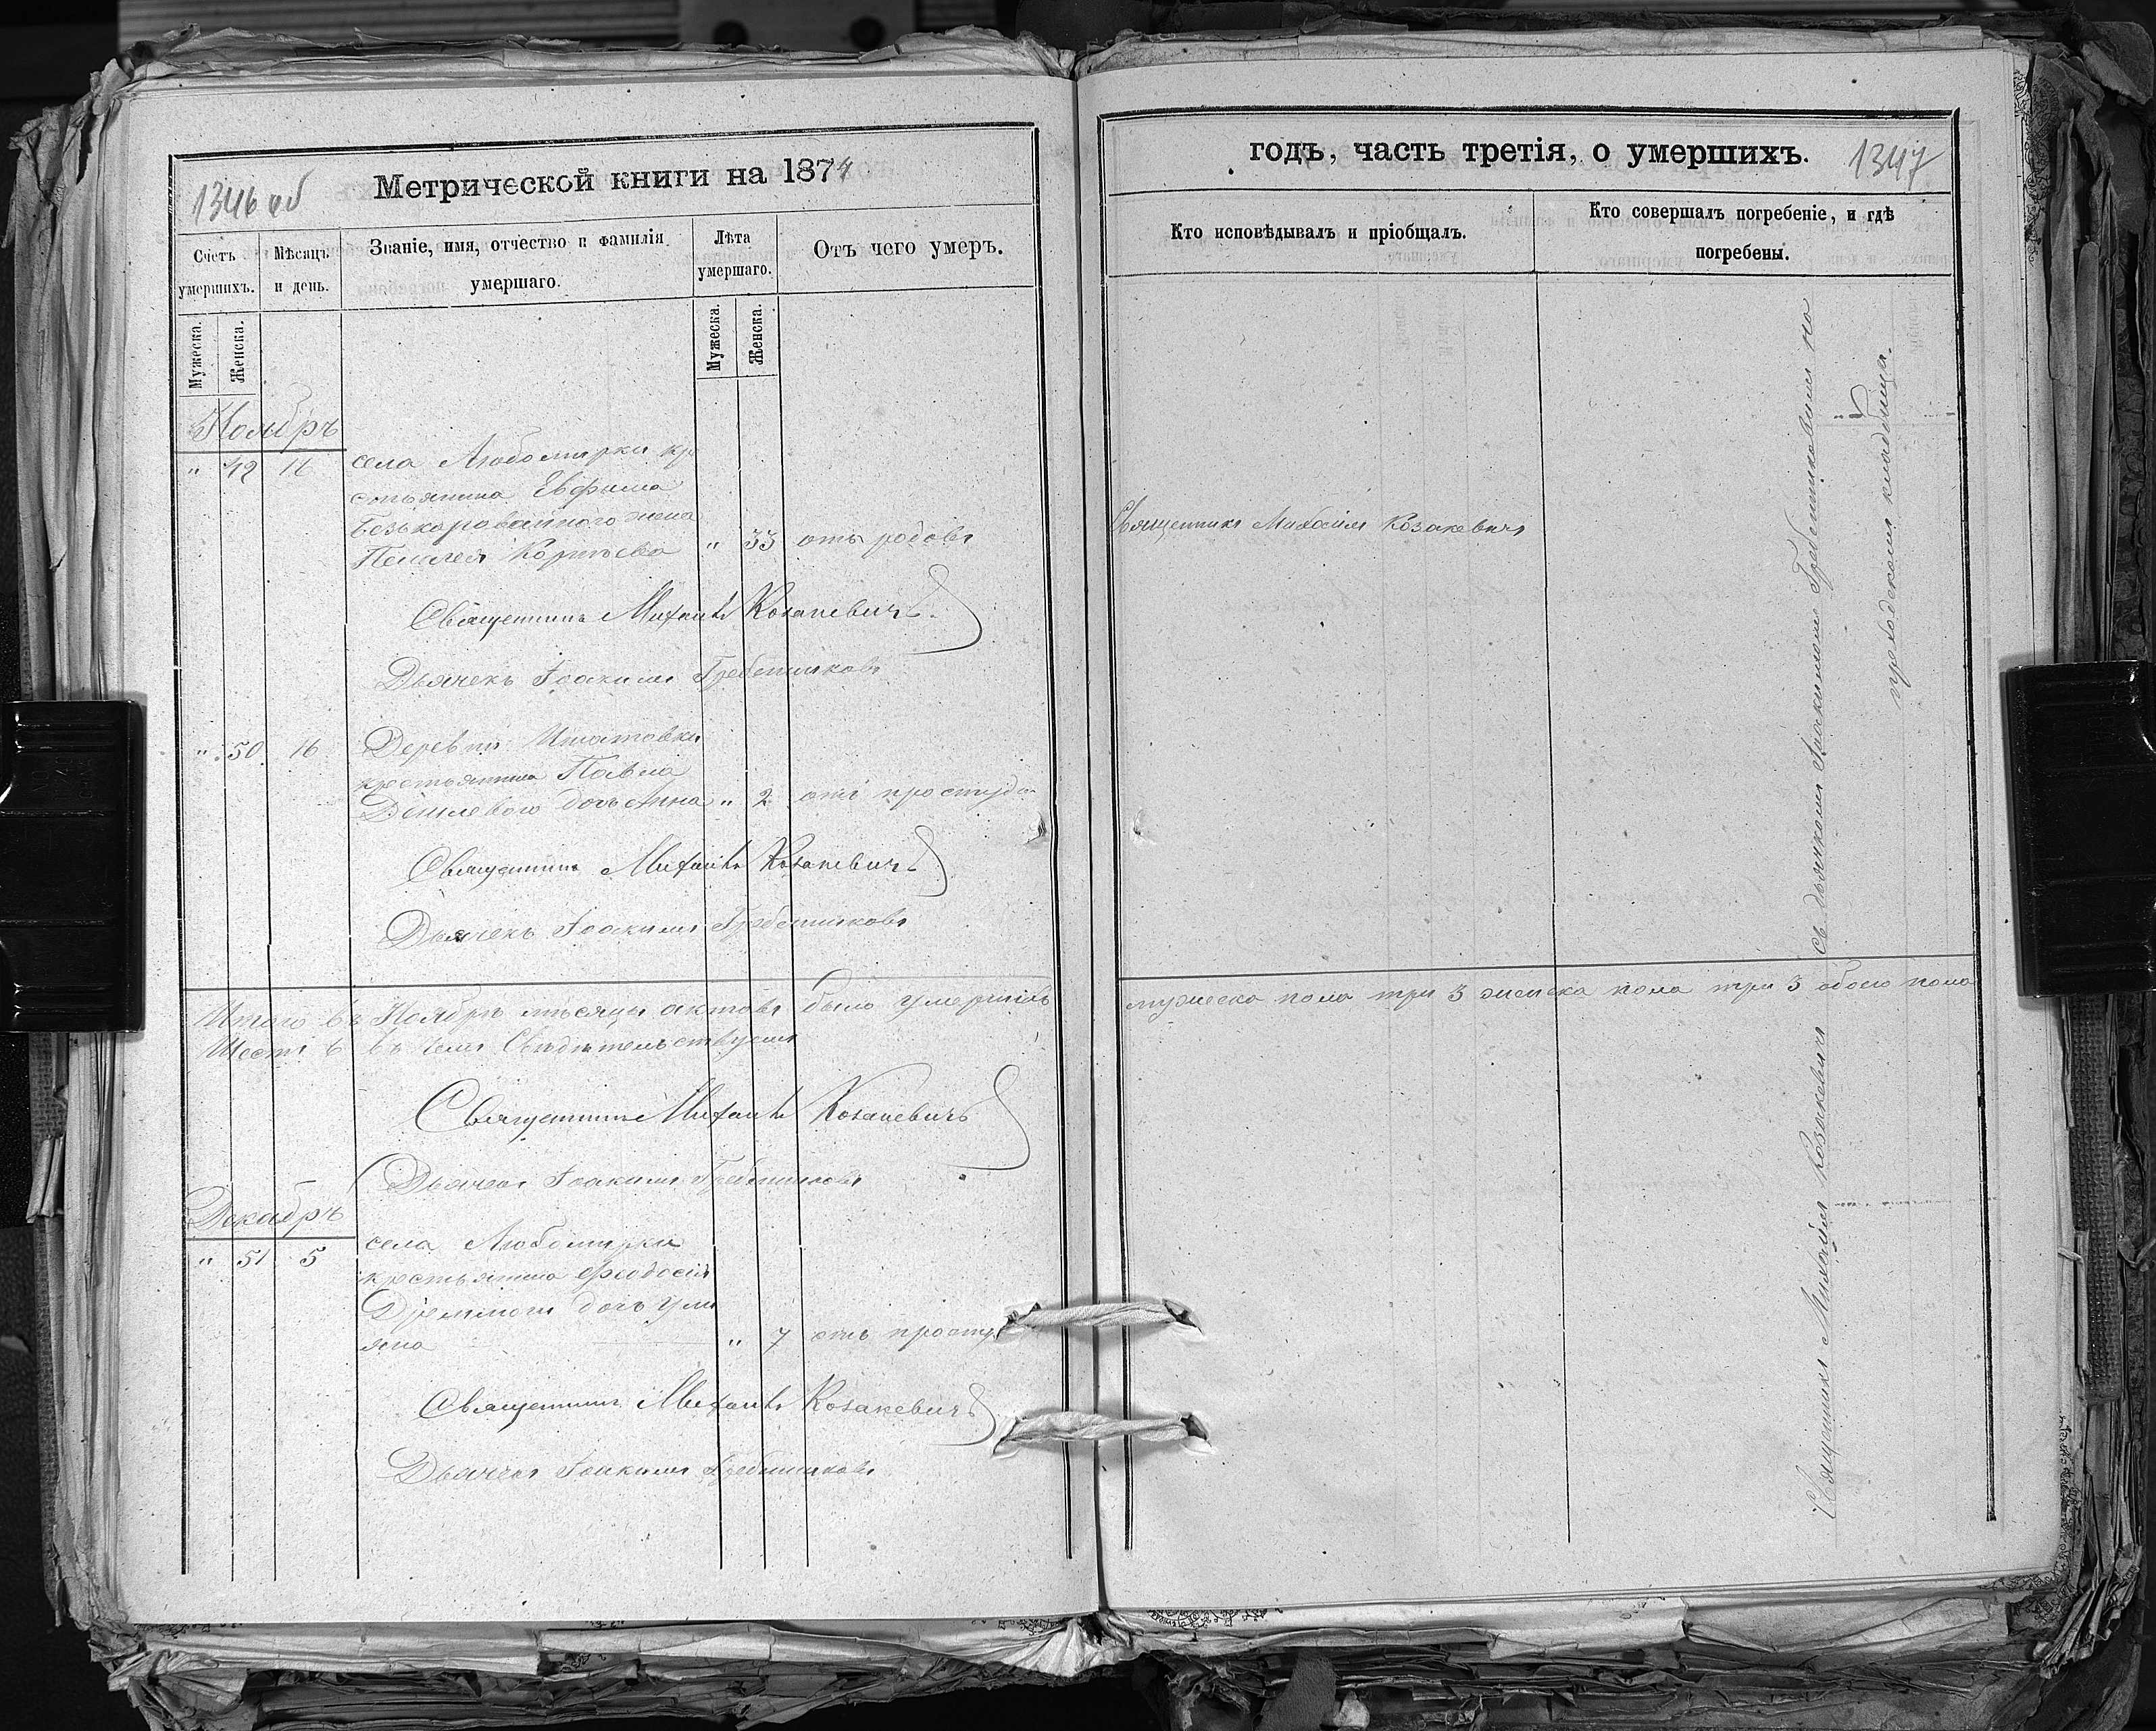 1346 об
Метрической книги на 1874
Счетъ умершихъ.
Мѣсяцъ и день.
Званіе, имя, отчество и фамилія умершаго.
Лѣта умершаго.
Отъ чего умеръ.
Мужеска.
Женска.
Мужеска.
Женска.
Ноябрь
" 49 16 села Любомирки кре
стьянина Евфима
Безькороваиного жена
Пелагея " 33 отъ родовъ
Священникъ Михаилъ Козакевичъ.
Дьячекъ Іоакимъ Гребенниковъ
" 50 16 Деревни
крестьянина Павла
дочь Анна " 2 отъ простуды
Священникъ Михаилъ Козакевичъ
Дьячекъ Іоакимъ Гребенниковъ
Итого въ Ноябрѣ мѣсяцѣ актовъ было умершихъ
Шесть 6 въ чемъ Свидѣтельствуемъ
Священникъ Михаилъ Козакевичъ
Дьячекъ Іоакимъ Гребенниковъ
Декабрь
" 51 5 села Любомирки
крестьянина Феодосія
дочь Ули
яна " 7 отъ просту
Священникъ Михаилъ Козакевичъ
Дьячекъ Іоакимъ Гребенниковъ
годъ, часть третія, о умершихъ.
1347
Кто исповѣдывалъ и пріобщалъ.
Кто совершалъ погребеніе, и гдѣ погребены.
Священникъ Михаилъ Козакевичъ
мужеска пола три 3 женска пола три 3 обоего пола
Священникъ Михаилъ Козакевичъ Съ дьячкомъ Іоакимомъ Гребенниковымъ на
приходскомъ кладбищѣ.